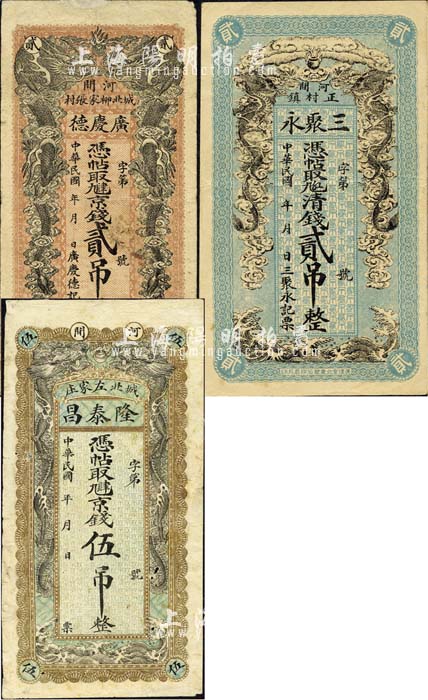 上海陽明拍賣
www.yangmingauction.com
貳 貳
河間
城北柳家張村
廣慶德
字第 號
憑帖取九八京錢貳吊
中華民國 年 月 日廣慶德記
貳 貳
河間
正村鎮
三聚永
字第 號
憑帖取九八清錢貳吊整
中華民國 年 月 日三聚永記票
貳 貳
伍 河間 伍
城北左家庄
隆泰昌
字第 號
憑帖取九八京錢伍吊整
中華民國 年 月 日 票
伍 伍